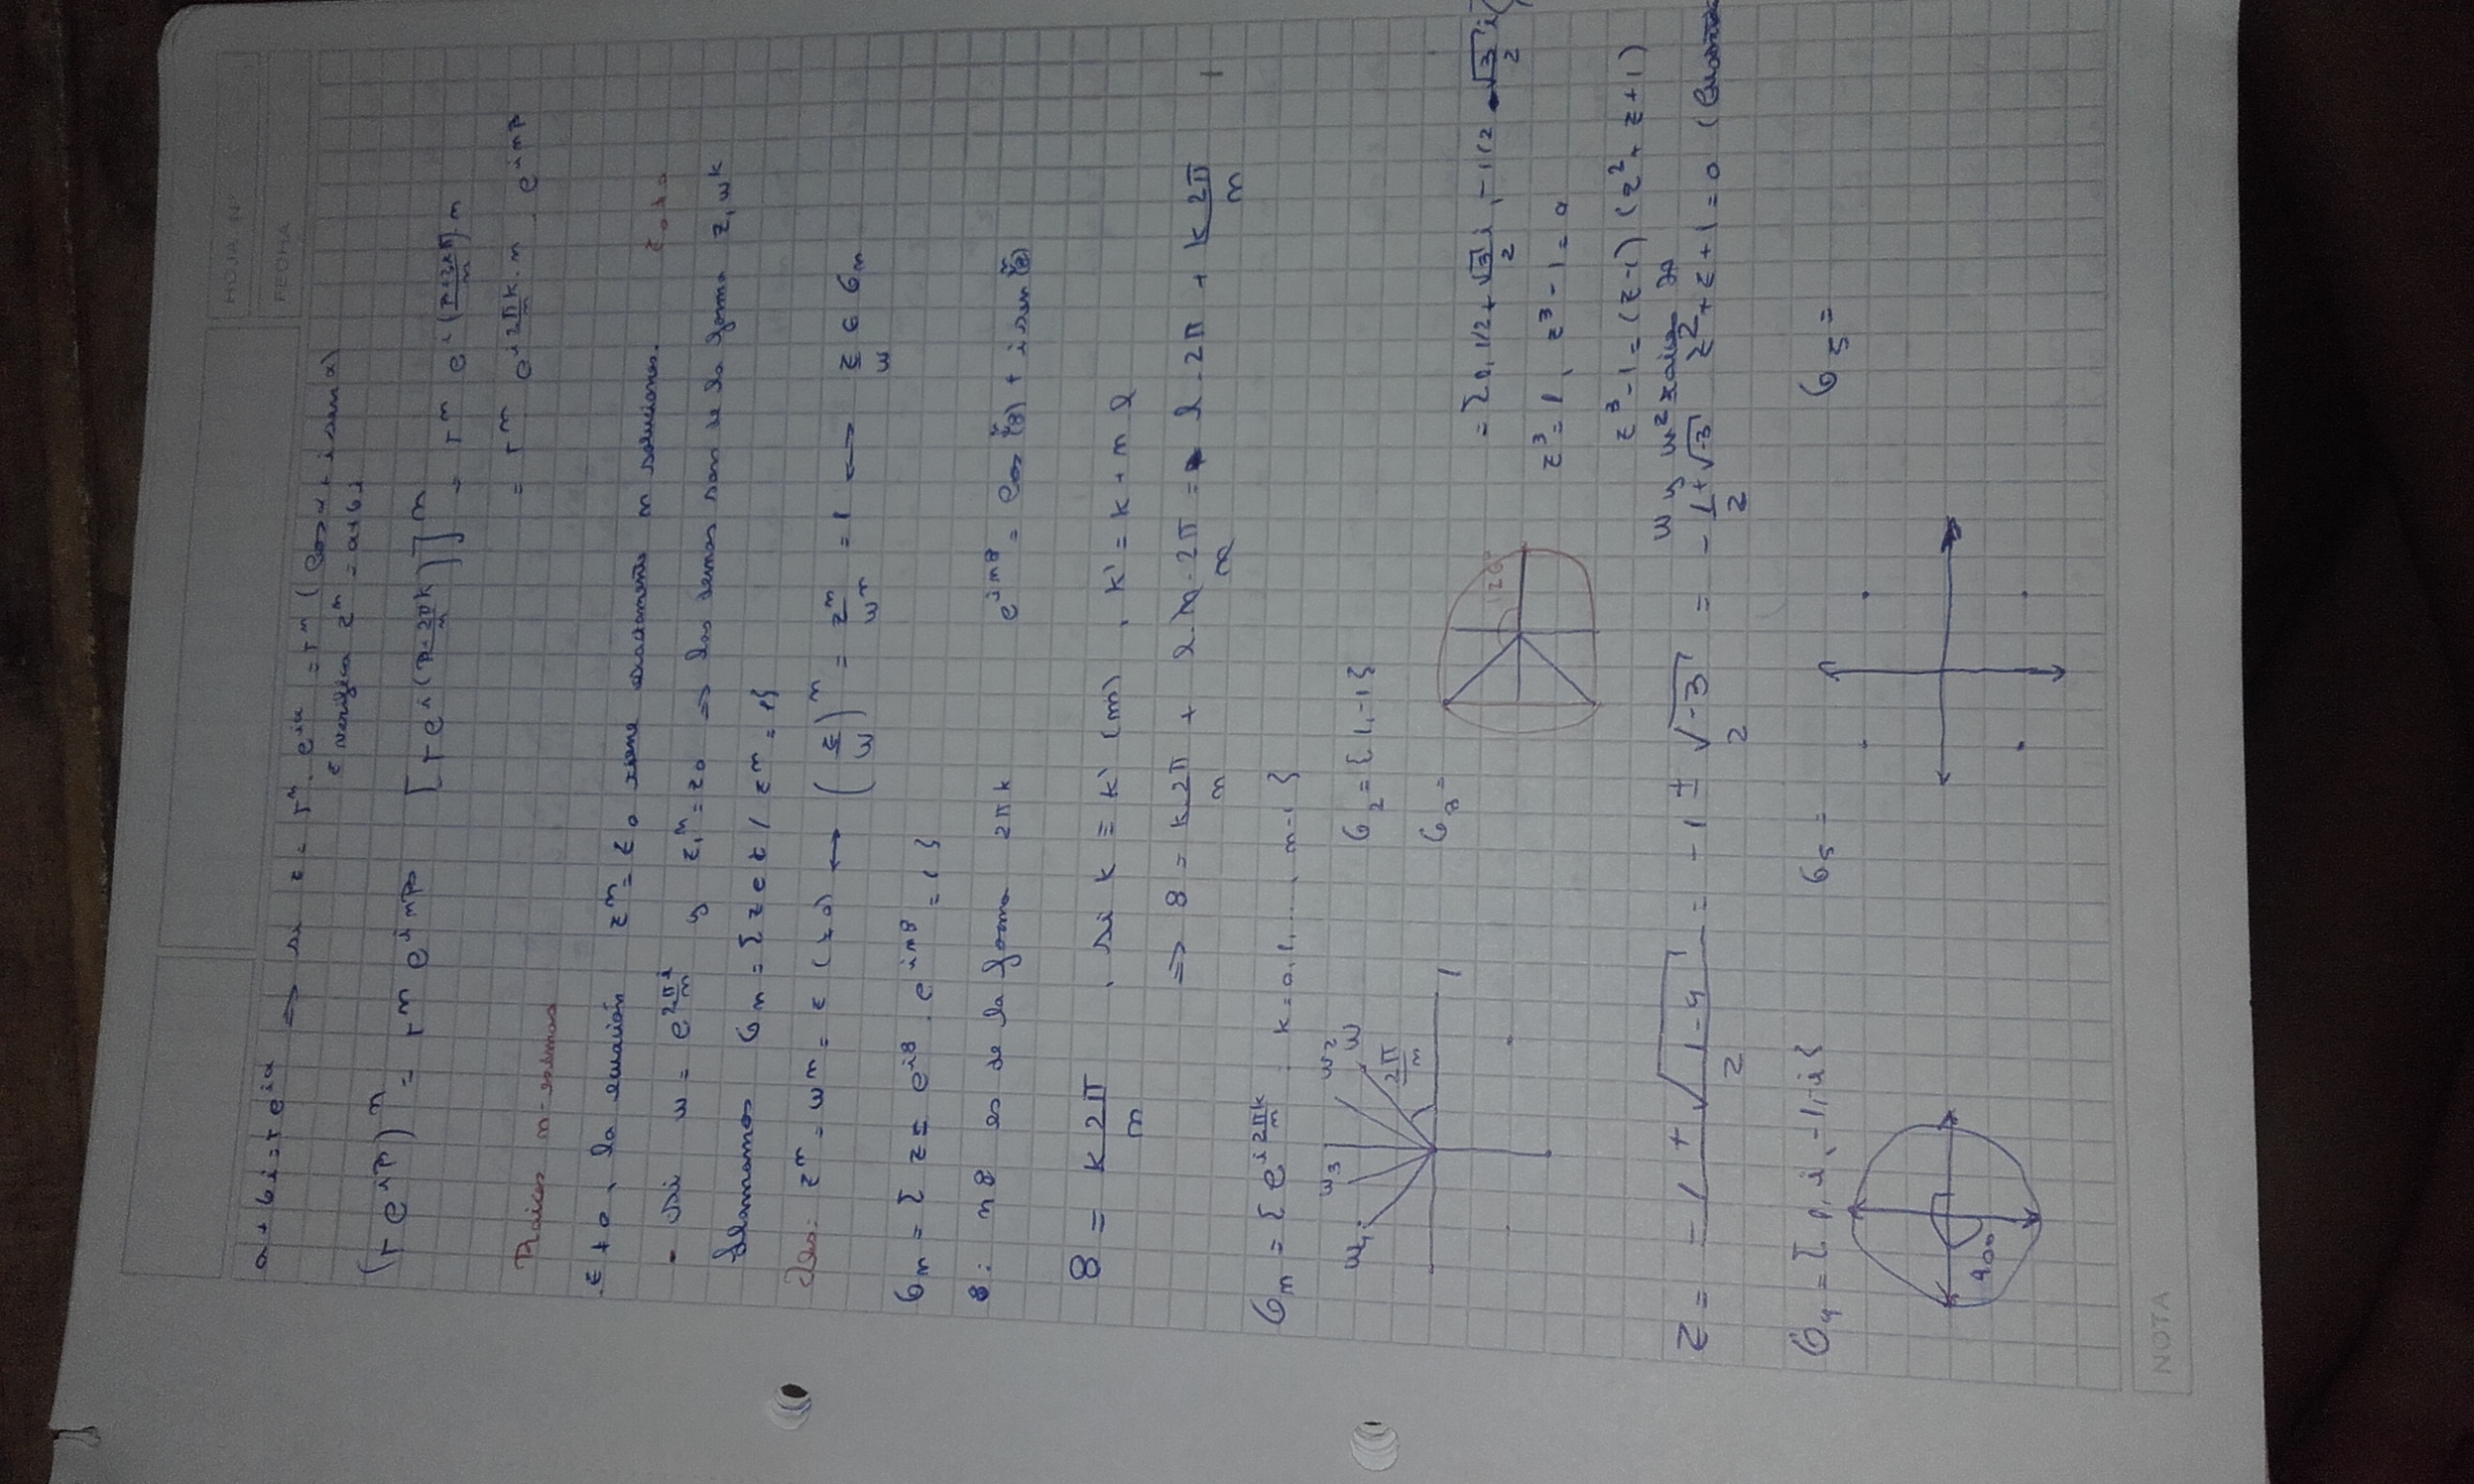 HOJA N°
FECHA
a + bi = r e^{iα} ⟹ si z = r^n . e^{iα} = r^n (cos α + i sen α)
z verifica z^n = a+bi
(r e^{iβ})^n = r^n e^{inβ} [r e^{i(β + 2πk/n)}]^n = r^n e^{i(β+2kπ/n) n}
= r^n e^{i 2πk/n . n} . e^{inβ}
Raices n-esimas
z ≠ 0, la ecuación z^n = z_0 tiene exactamente n soluciones. z_0 ≠ 0
- Si w = e^{2πi/n} y z_1^n = z_0 ⟹ las demas son de la forma z_1 w^k
Llamamos G_n = {z ∈ ℂ / z^n = 1}
z^n = w^n = z (≠ 0) ⟷ (z/w)^n = z^n/w^n = 1 ⟷ z/w ∈ G_n
G_n = { z = e^{iθ} . e^{inθ} = 1 }
θ: nθ es de la forma 2πk e^{inθ} = cos (nθ) + i sen (nθ)
θ = k 2π/n , si k ≡ k' (n) , k' = k + n l
⟹ θ = k 2π/n + l . n . 2π/n = l . 2π + k 2π/n
G_n = { e^{i 2πk/n} : k = 0, 1, ..., n-1 }
w_4 w_3 w_2 w
2π/n
1
G_2 = {1, -1}
G_3 =
120°
= {1, 1/2 + √3/2 i, -1/2 - √3/2 i}
z^3 = 1, z^3 - 1 = 0
z^3 - 1 = (z-1) (z^2 + z + 1)
w y w^2 raices de
z = -1 ± √(1-4) / 2 = -1 ± √-3 / 2 = -1 + √-3 / 2 z^2 + z + 1 = 0
G_4 = {1, i, -1, -i} G_5 = G_5 =
90°
NOTA